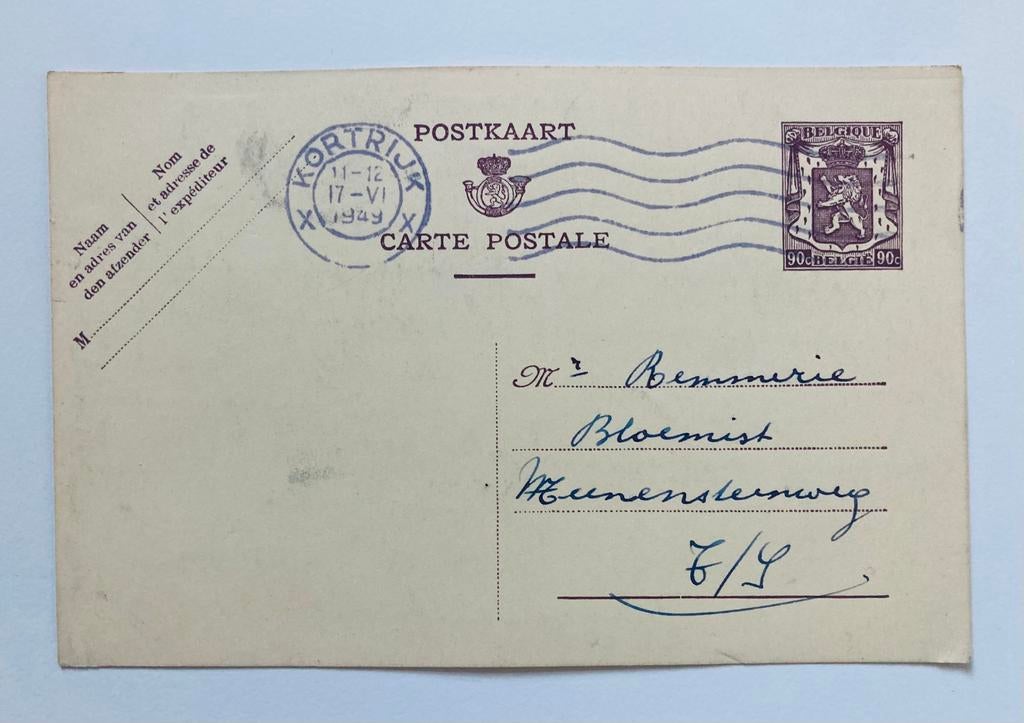 Naam
en adres van
den afzender
Nom
et adresse de
l'expéditeur
M
KORTRIJK
11-12
17-VI
1949
X X
POSTKAART
CARTE POSTALE
BELGIQUE
90c BELGIE 90c
Mr Remmerie
Bloemist
T/S